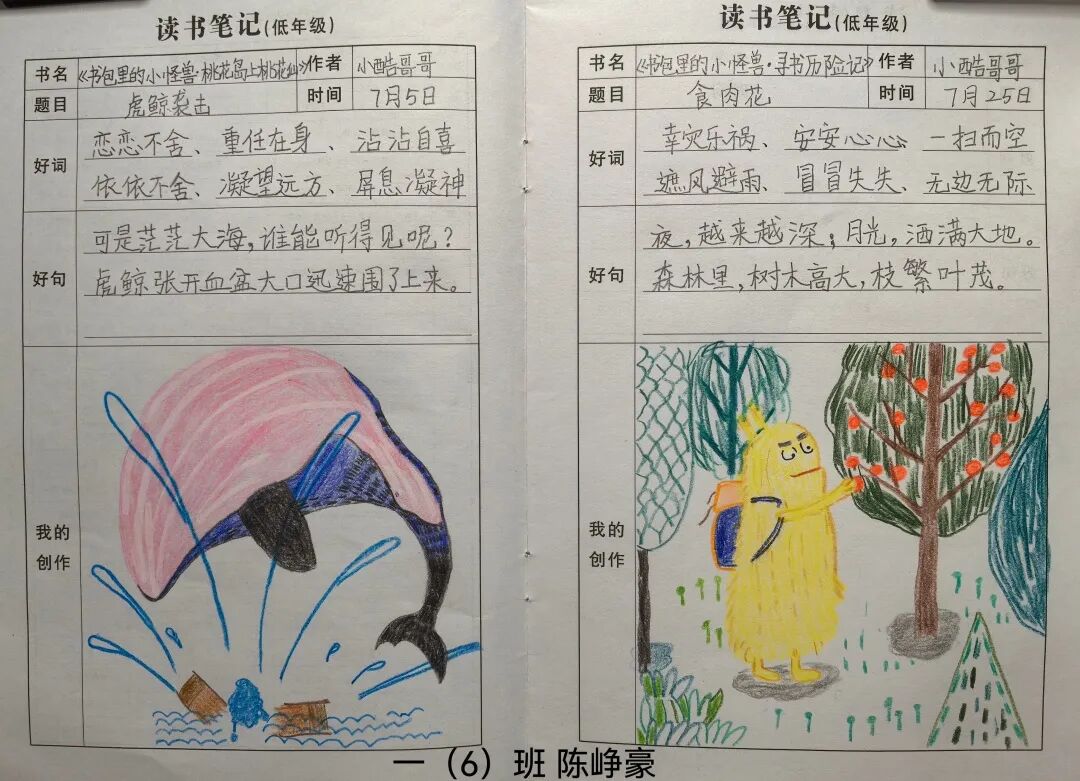 读书笔记(低年级)
书名 《书包里的小怪兽·桃花岛上桃花仙》 作者 小酷哥哥
题目 虎鲸袭击 时间 7月5日
好词 恋恋不舍、重任在身、沾沾自喜
依依不舍、凝望远方、屏息凝神
好句 可是茫茫大海,谁能听得见呢?
虎鲸张开血盆大口迅速围了上来。
我的
创作
读书笔记(低年级)
书名 《书包里的小怪兽·寻书历险记》 作者 小酷哥哥
题目 食肉花 时间 7月25日
好词 幸灾乐祸、安安心心、一扫而空
遮风避雨、冒冒失失、无边无际
好句 夜,越来越深;月光,洒满大地。
森林里,树木高大,枝繁叶茂。
我的
创作
一（6）班 陈峥豪